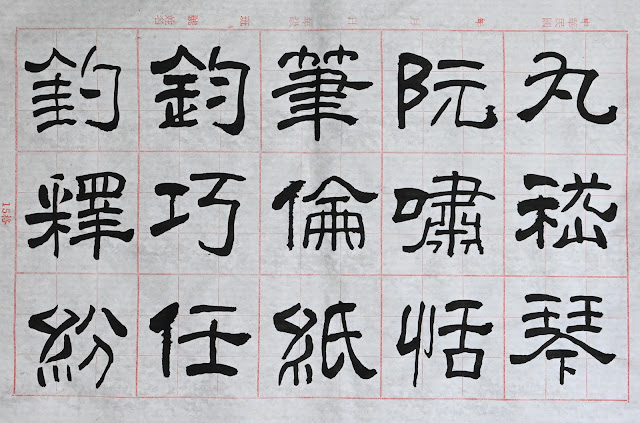 丸嵇琴
阮嘯恬
筆倫紙
鈞巧任
釣釋紛
15格